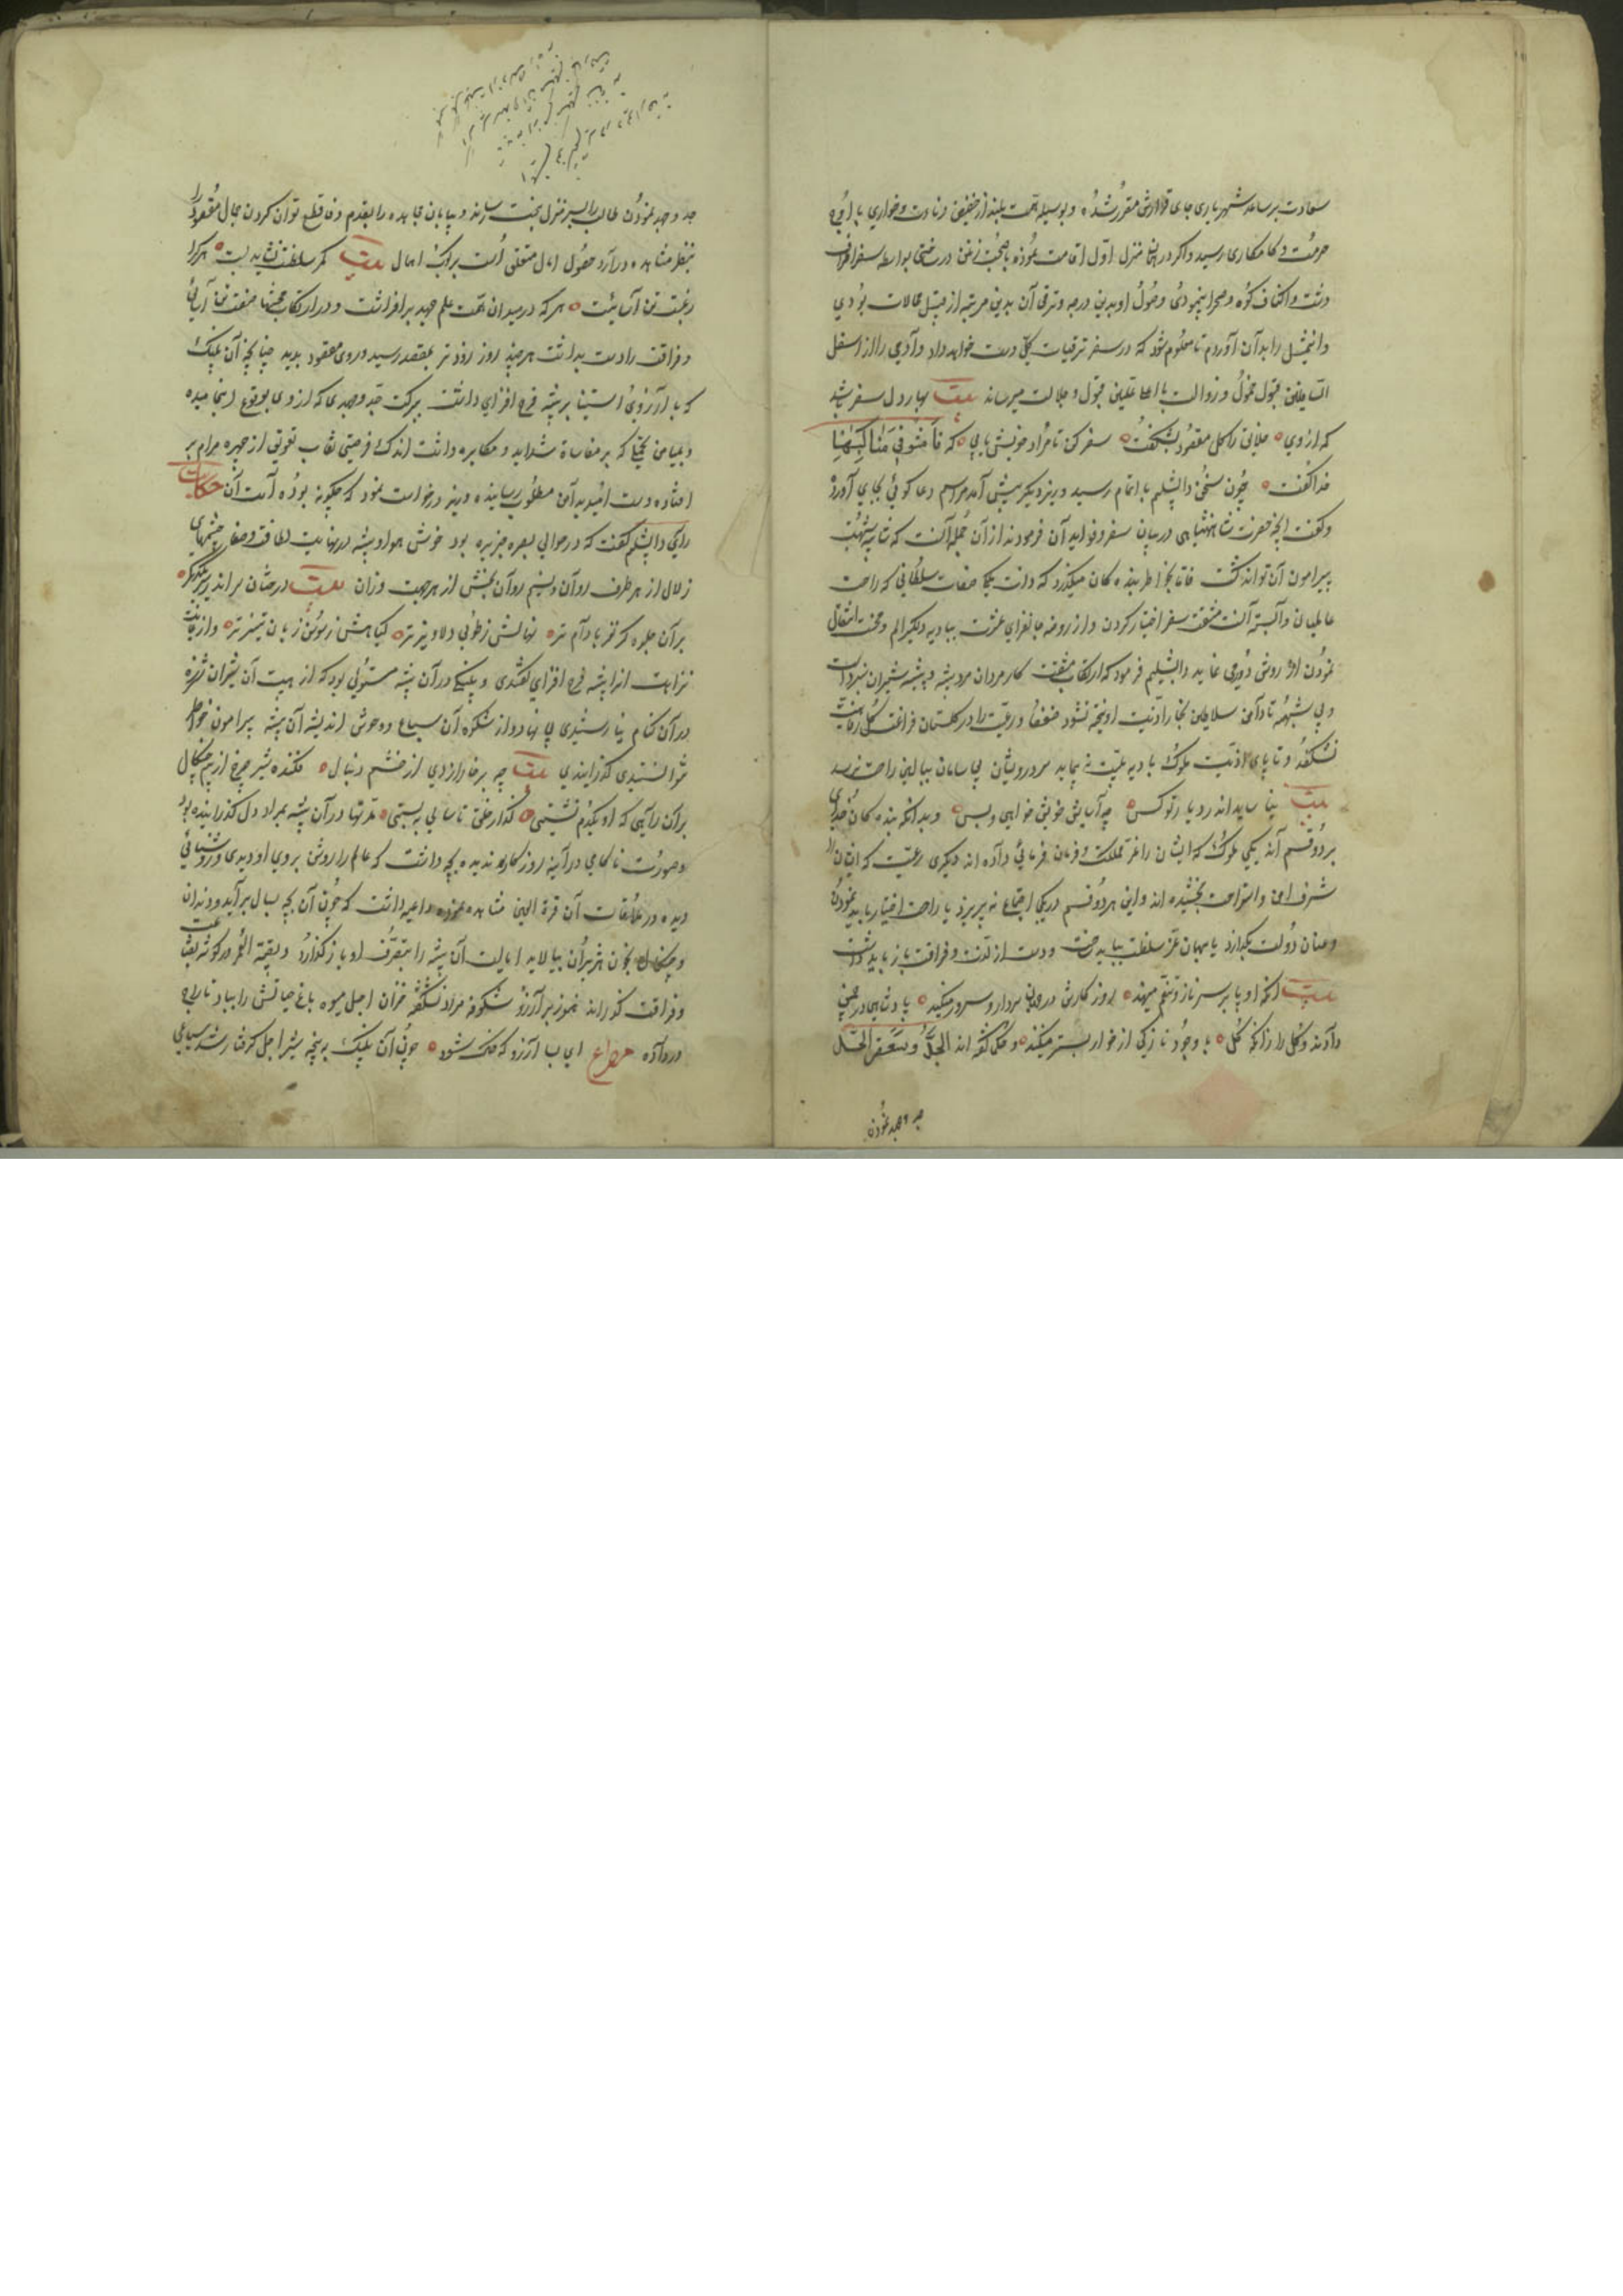 سعادت بر ساعد شهریاری جای قرارش مقرر شده و بوسیله همت بلند از حضیض دناءت و خواری باوج
حرمت و کامکاری رسید و اگر در همان منزل اول اقامت نموده با صحبت زغن در ساختی بواسطه سفر اطراف
دشت و اکناف کوه و صحرا نپیمودی وصول او بدین درجه و ترقی آن بدین مرتبه از قبیل محالات بودی
و این مثل را بدان آوردم تا معلوم شود که در سفر ترقیات کلی دست خواهد داد و آدمی را از اسفل
السافلین قبول خمول و رذالت با اعلا علیین قبول و جلالت میرساند بیت بهار دل سفر باشد
که از وی خلایق را گل مقصود بشکفت سفر کن تا مراد خویش یابی که فامشوا فی مناکبها
خدا گفت چون سخن دابشلیم باتمام رسید وزیر دیگر پیش آمد مراسم دعا گوئی بجای آورد
و گفت آنچه حضرت شاهنشاهی در بیان سفر و فواید آن فرمودند از آن جمله است که شایبه شبهت
پیرامون آن تواند گشت فاما بخاطر بنده کان میگذرد که ذات ملکی صفات سلطانی که راحت
عالمیان وابسته آنست مشقت سفر اختیار کردن و از روضه جانفزای عشرت ببادیه دلگیر الم و محنت انتقال
نمودن از روش دوری نماید دابشلیم فرمود که ارتکاب مشقت کار مردان مرد بیشه و پیشه شیران نبرد است
و بی شبهه تا دامن سلاطین بخار اذیت آویخته نشود ضعفا و رعیت را در گلستان فراغت گل رفاهیت
نشکفد و تا پای اذیت ملوک بادیه بلیت نه پیماید سر درویشان بی سامان ببالین راحت نرسد
بیت نیاساید اندر دیار تو کس چه آسایش خویش خواهی و بس و بدانکه بنده کان خدای
بر دو قسم اند یکی ملوک که ایشان را عز مملکت و فرمان فرمائی داده اند دیگری رعیت که ایشان را
شرف امن و استراحت بخشیده اند و این هر دو قسم در یکجا اجتماع نه پذیرد یا راحت اختیار باید نمود
و عنان دولت بگذارد یا بهمان عز سلطنت بباید ساخت و دست از لذت و فراغت باز باید داشت
بیت آنکه او پا بر سر ناز و تنعم مینهد روز کارش در جهان سردار و سرور میکند پادشاهی در چمن
دادند گل را زانکه گل با وجود نازکی از خار بستر میکند و حکما گفته اند الجد
جد و جهد نمودن
جد و جهد نمودن طالب را بسر منزل بخت رساند و بیابان مجاهده را بقدم وفا قطع توان کردن جمال مقصود را
بنظر مشاهده درآرد حصول امال متعلق است بر ترک اهمال بیت گر سلطنتش باید بست هر کرا
رغبت تن آسانیست هر که در میدان همت علم جهد برافراشت و در ارتکاب محنتها صفت تن آسانی
و فراغت را دست بداشت هر چند روز زودتر بمقصد رسید و روی مقصود بدید چنانچه آن پلنک
که با آرزوی استیلا بر بیشه فرح افزای داشت ببرکت جد و جهدی که از وی بوقوع انجامیده
و بمیامن تحملی که بر مقاسات شداید و مکابره داشت اندک فرصتی نقاب تعویق از چهره مرام بر
افتاده دست امید بدامن مطلوب رسانیده وزیر درخواست نمود که چگونه بوده است آن حکایت
رای دابشلیم گفت که در حوالی بصره جزیره بود خوش هوا و بیشه در نهایت لطافت و صفا چشمهای
زلال از هر طرف روان و نسیم روان بخش از هر جهت وزان بیت درختان سر اندر سر یکدیگر
بران جلوه کر نغز بادام تر نهالش ز طوبی دلاویزتر گیاهش ز سوسن زبان تیزتر و از غایت
نزاهت آنرا بیشه فرح افزای گفتندی و پلنگی در آن بیشه مستولی بود که از هیبت آن شیران شرزه
در آن کنام نیارستندی پی نهاد و از شکوه آن سباع و وحوش اندیشه آن بیشه پیرامون خواطر
نتوانستندی گذرانیدی بیت چه بر خارا زدی از خشم دنبال فکنده شیر چرخ از بیم چنگال
بران راهی که او یکدم نشستی گذار خلق تا سالی ببستی مدتها در آن بیشه بمراد دل گذرانیده بود
و صورت ناکامی در آینه روزگار ندیده بچه داشت که عالم را روشن بروی او دیدی و روشنائی
دیده در ملاقات آن قرة العین مشاهده نموده داعیه داشت که چون آن بچه بسال برآید و دندان
و چنگال بخون هژبران بیالاید ایالت آن بیشه را بتصرف او باز گذارد و بقیة العمر در گوشه قناعت
و فراغت گذراند هنوز بر آرزو شکوفه مراد نشکفته خزان اجل میوه باغ حیاتش را بباد تاراج
در داده مصراع ای بسا آرزو که خاک شود چون آن پلنک بر پنجه شیر اجل گرفتار شد سباعی